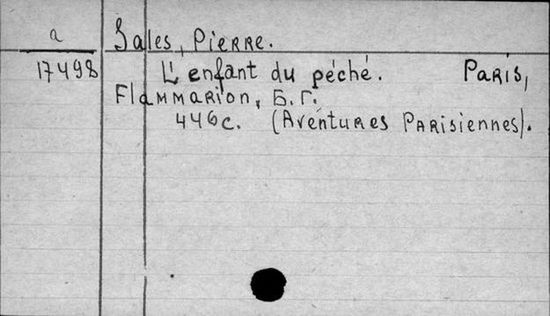 a Sales, Pierre.
17498 L'enfant du péché. Paris,
Flammarion, Б.Г.
446c. (Aventures Parisiennes).